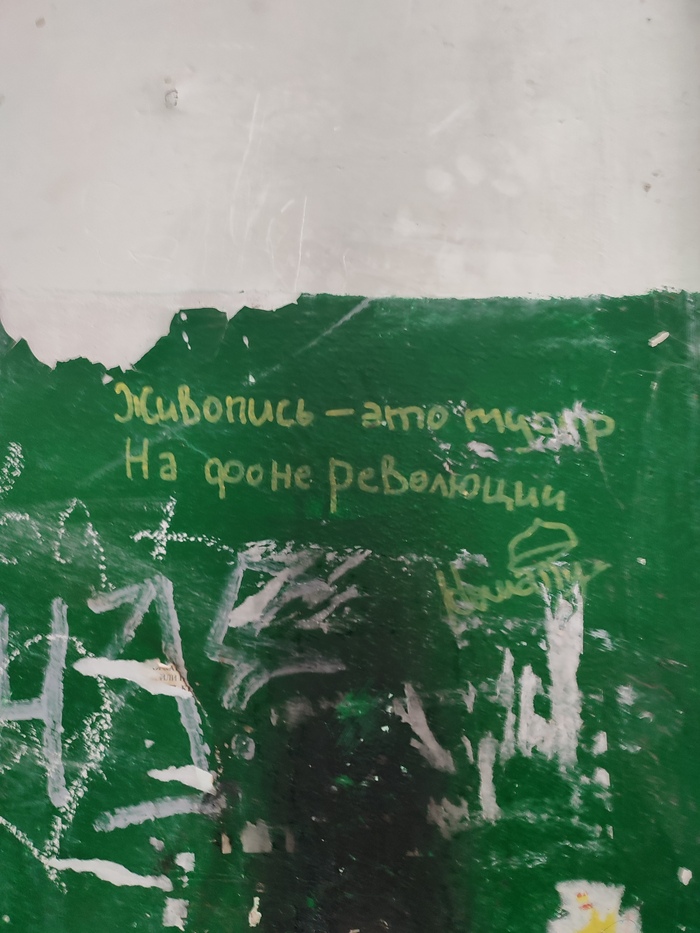 Живопись – это мусор
На фоне революции